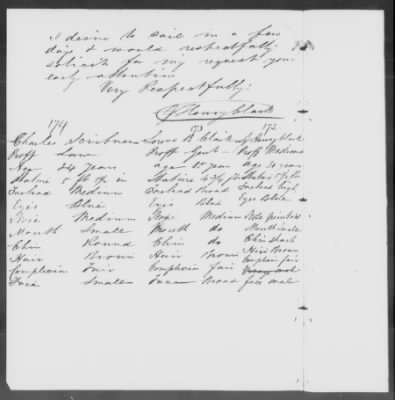 I desire to sail in a few
days & would respectfully
solicit for my request your
early attention
Very Respectfully
Henry Clark
174 173 172
Charles Scribner Lewis B Clark Henry Clark
Proff Law Proff Gent Proff Medicine
Age 24 years age 25 year age 30 year
Stature 5 ft in Stature ft Stature 5 ft
Forhead Medium Forhead Broad Forhead high
Eyes Blue Eyes Blue Eyes Blue
Nose Medium Nose Medium Nose pointed
Mouth Small Mouth do Mouth
Chin Round Chin do Chin
Hair Brown Hair Brown Hair Brown
Complexion Fair Complexion fair Complexion fair
Face Small Face Broad face oval